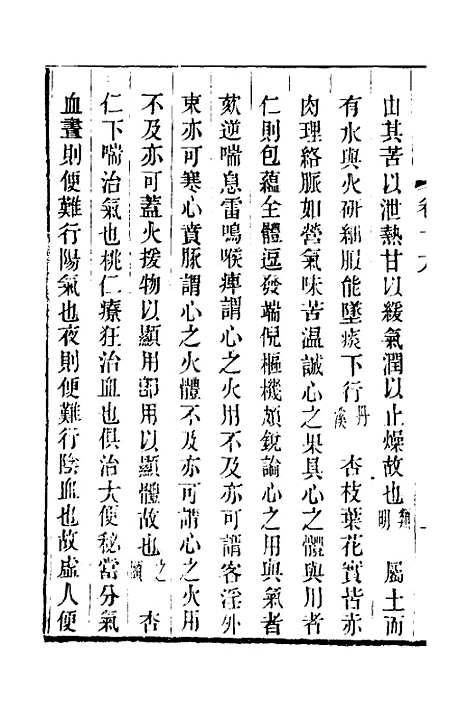 由其苦以泄熱甘以緩氣潤以止燥故也類明　屬土而
有水與火研細服能墜痰下行丹溪　杏枝葉花實皆赤
肉理絡脈如營氣味苦溫誠心之果具心之體與用者
仁則包蘊全體逗發端倪樞機頗銳論心之用與氣者
欬逆喘息雷鳴喉痺謂心之火用不及亦可謂客淫外
束亦可寒心賁豚謂心之火體不及亦可謂心之火用
不及亦可蓋火援物以顯用卽用以顯體故也之頤　杏
仁下喘治氣也桃仁療狂治血也俱治大便秘當分氣
血晝則便難行陽氣也夜則便難行陰血也故虛人便